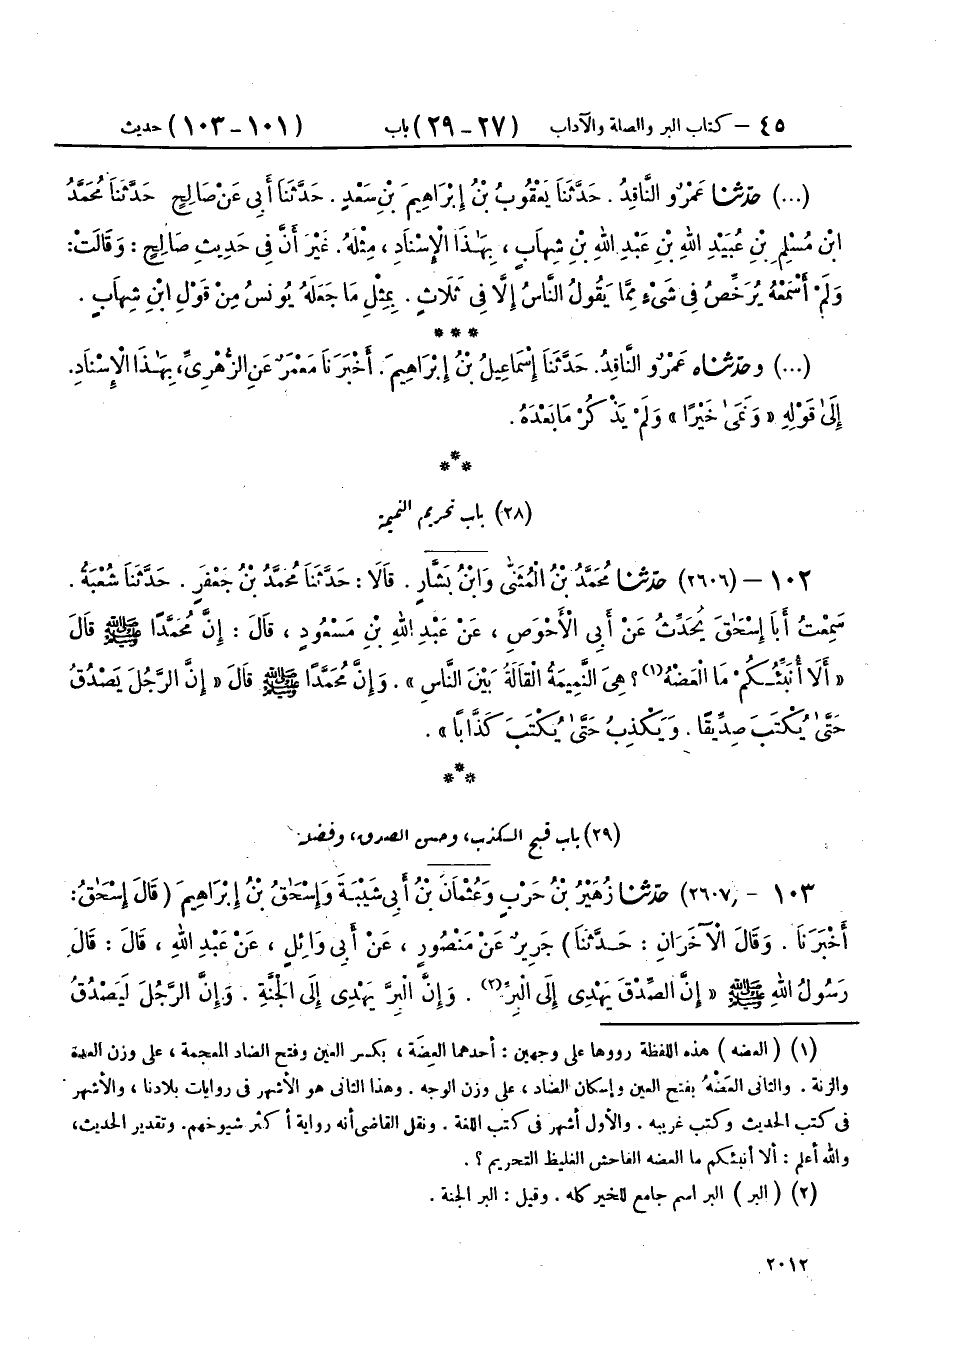 ٤٥ – كتاب البر والصلة والآداب (٢٧ – ٢٩) باب (١٠١ – ١٠٣) حديث
(...) حدّثنا عَمْرٌو النَّاقِدُ. حَدَّثَنَا يَعْقُوبُ بْنُ إِبْرَاهِيمَ بْنِ سَعْدٍ. حَدَّثَنَا أَبِي عَنْ صَالِحٍ حَدَّثَنَا مُحَمَّدُ
ابْنُ مُسْلِمِ بْنِ عُبَيْدِ اللهِ بْنِ عَبْدِ اللهِ بْنِ شِهَابٍ، بِهَٰذَا الْإِسْنَادِ، مِثْلَهُ. غَيْرَ أَنَّ فِي حَدِيثِ صَالِحٍ: وَقَالَتْ:
وَلَمْ أَسْمَعْهُ يُرَخِّصُ فِي شَيْءٍ مِمَّا يَقُولُ النَّاسُ إِلَّا فِي ثَلَاثٍ. بِمِثْلِ مَا جَعَلَهُ يُونُسُ مِنْ قَوْلِ ابْنِ شِهَابٍ.
***
(...) وحدّثناه عَمْرٌو النَّاقِدُ. حَدَّثَنَا إِسْمَاعِيلُ بْنُ إِبْرَاهِيمَ. أَخْبَرَنَا مَعْمَرٌ عَنِ الزُّهْرِيِّ، بِهَٰذَا الْإِسْنَادِ.
إِلَىٰ قَوْلِهِ « وَنَمَىٰ خَيْرًا » وَلَمْ يَذْكُرْ مَا بَعْدَهُ.
***
(٢٨) باب تحريم النميمة
١٠٢ – (٢٦٠٦) حدّثنا مُحَمَّدُ بْنُ الْمُثَنَّىٰ وَابْنُ بَشَّارٍ. قَالَا: حَدَّثَنَا مُحَمَّدُ بْنُ جَعْفَرٍ. حَدَّثَنَا شُعْبَةُ.
سَمِعْتُ أَبَا إِسْحَاقَ يُحَدِّثُ عَنْ أَبِي الْأَحْوَصِ، عَنْ عَبْدِ اللهِ بْنِ مَسْعُودٍ، قَالَ: إِنَّ مُحَمَّدًا ﷺ قَالَ
« أَلَا أُنَبِّئُكُمْ مَا الْعَضْهُ(١)؟ هِيَ النَّمِيمَةُ الْقَالَةُ بَيْنَ النَّاسِ ». وَإِنَّ مُحَمَّدًا ﷺ قَالَ « إِنَّ الرَّجُلَ يَصْدُقُ
حَتَّىٰ يُكْتَبَ صِدِّيقًا. وَيَكْذِبُ حَتَّىٰ يُكْتَبَ كَذَّابًا ».
***
(٢٩) باب قبح الكذب، وحسن الصدق، وفضله
١٠٣ – (٢٦٠٧) حدّثنا زُهَيْرُ بْنُ حَرْبٍ وَعُثْمَانُ بْنُ أَبِي شَيْبَةَ وَإِسْحَاقُ بْنُ إِبْرَاهِيمَ (قَالَ إِسْحَاقُ:
أَخْبَرَنَا. وَقَالَ الْآخَرَانِ: حَدَّثَنَا) جَرِيرٌ عَنْ مَنْصُورٍ، عَنْ أَبِي وَائِلٍ، عَنْ عَبْدِ اللهِ، قَالَ: قَالَ
رَسُولُ اللهِ ﷺ « إِنَّ الصِّدْقَ يَهْدِي إِلَى الْبِرِّ(٢). وَإِنَّ الْبِرَّ يَهْدِي إِلَى الْجَنَّةِ. وَإِنَّ الرَّجُلَ لَيَصْدُقُ
(١) (العضه) هذه اللفظة رووها على وجهين: أحدهما العِضَة، بكسر العين وفتح الضاد المعجمة، على وزن العدة
والزنة. والثانى العَضْهُ بفتح العين وإسكان الضاد، على وزن الوجه. وهذا الثانى هو الأشهر فى روايات بلادنا، والأشهر
فى كتب الحديث وكتب غريبه. والأول أشهر فى كتب اللغة. ونقل القاضى أنه رواية أكثر شيوخهم. وتقدير الحديث،
والله أعلم: ألا أنبئكم ما العضه الفاحش الغليظ التحريم؟.
(٢) (البر) البر اسم جامع للخير كله. وقيل: البر الجنة.
٢٠١٢